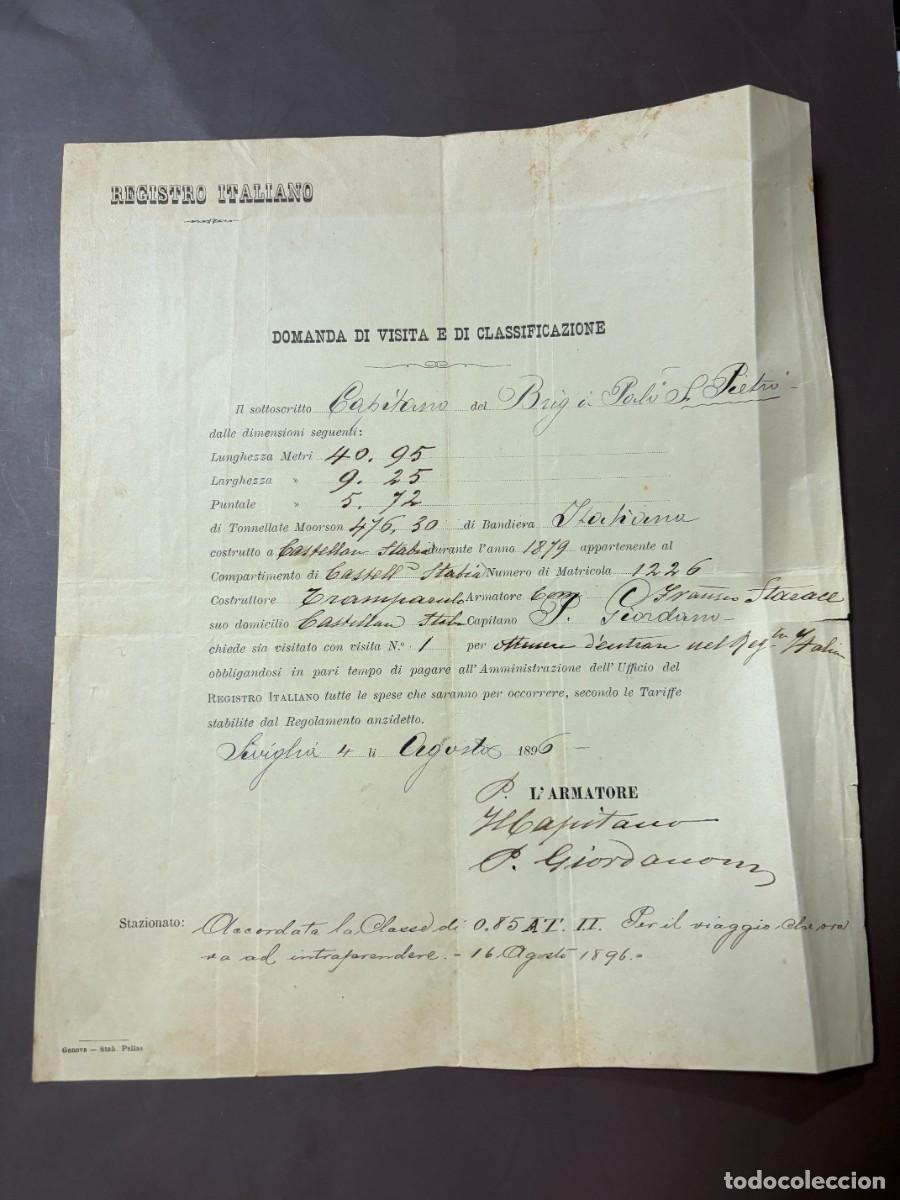 REGISTRO ITALIANO
DOMANDA DI VISITA E DI CLASSIFICAZIONE
Il sottoscritto Capitano del Brig S. Pietro
dalle dimensioni seguenti:
Lunghezza Metri 40.95
Larghezza » 9.25
Puntale » 5.72
di Tonnellate Moorson 476,30 di Bandiera Italiana
costrutto a Castellam Stabia durante l'anno 1879 appartenente al
Compartimento di Castell Stabia Numero di Matricola 1226
Costruttore Armatore Starace
suo domicilio Castellam Capitano P. Giordano
chiede sia visitato con visita N.° 1 per d'entrar nel
obbligandosi in pari tempo di pagare all'Amministrazione dell'Ufficio del
REGISTRO ITALIANO tutte le spese che saranno per occorrere, secondo le Tariffe
stabilite dal Regolamento anzidetto.
Siviglia 4 li Agosto 1896 -
P. L'ARMATORE
Il Capitano
P. Giordano
Stazionato: Accordata la Classe di 0.85 AT. II. Per il viaggio che ora
va ad intraprendere. - 16 Agosto 1896. -
Genova — Stab. Pellas
todocoleccion